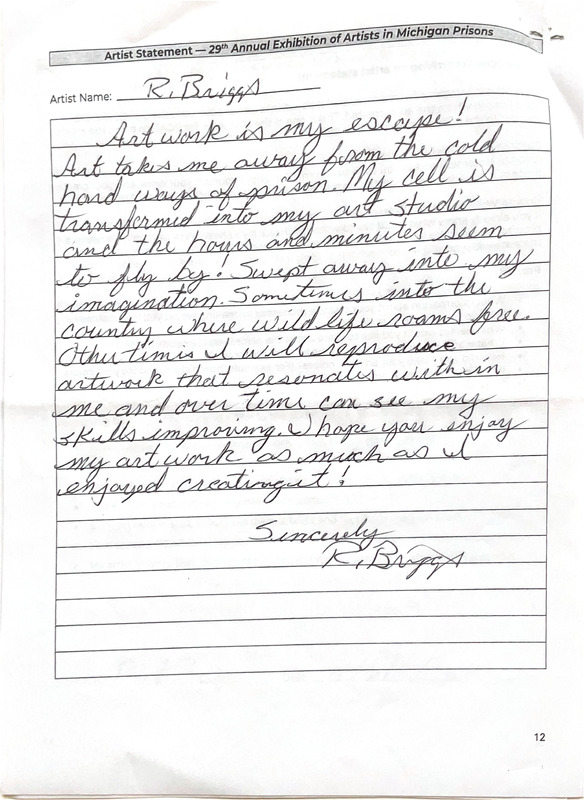 Artist Statement — 29th Annual Exhibition of Artists in Michigan Prisons
Artist Name: R. Briggs
Artwork is my escape!
Art takes me away from the cold
hard ways of prison. My cell is
transformed into my art studio
and the hours and minutes seem
to fly by! Swept away into my
imagination. Sometimes into the
country where wildlife roams free.
Other times I will reproduce
artwork that resonates within
me and over time can see my
skills improving. I hope you enjoy
my artwork as much as I
enjoyed creating it!
Sincerely
R. Briggs
12